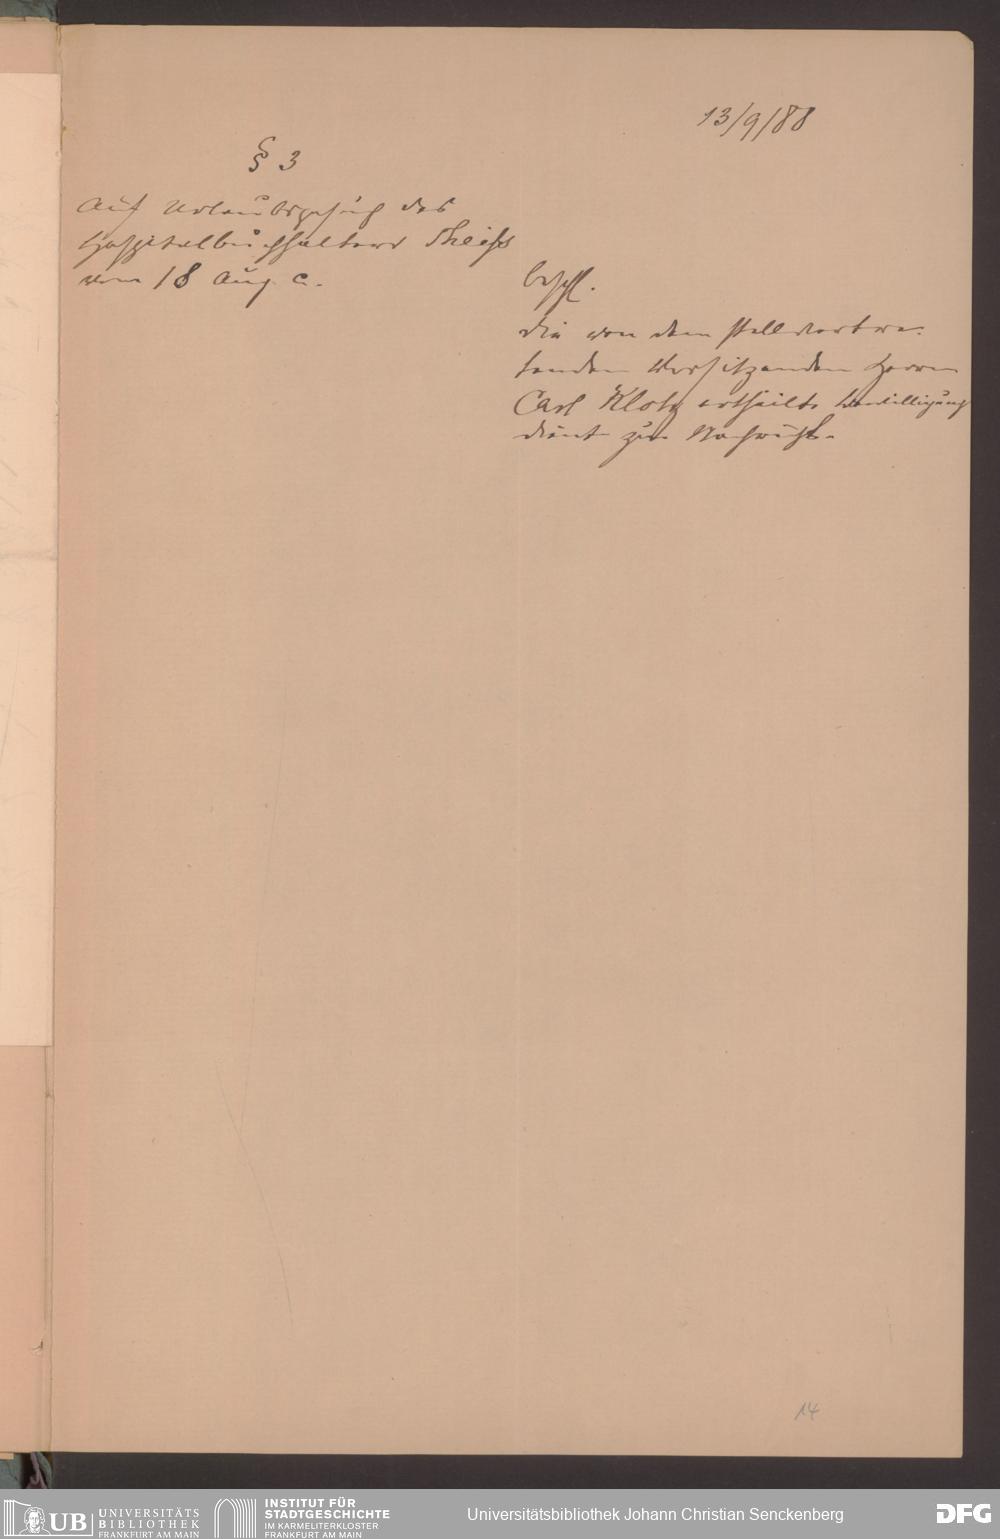 13/9/88
§ 3
Auf Urlaubsgesuch des
Hospitalbuchhalters Theiss
vom 18 Aug. c.
beschl.
die von dem stellvertre-
tenden Vorsitzenden Herrn
Carl Klotz ertheilte Bewilligung
dient zur Nachricht.
14
UB UNIVERSITÄTS
BIBLIOTHEK
FRANKFURT AM MAIN
INSTITUT FÜR
STADTGESCHICHTE
IM KARMELITERKLOSTER
FRANKFURT AM MAIN
Universitätsbibliothek Johann Christian Senckenberg
DFG